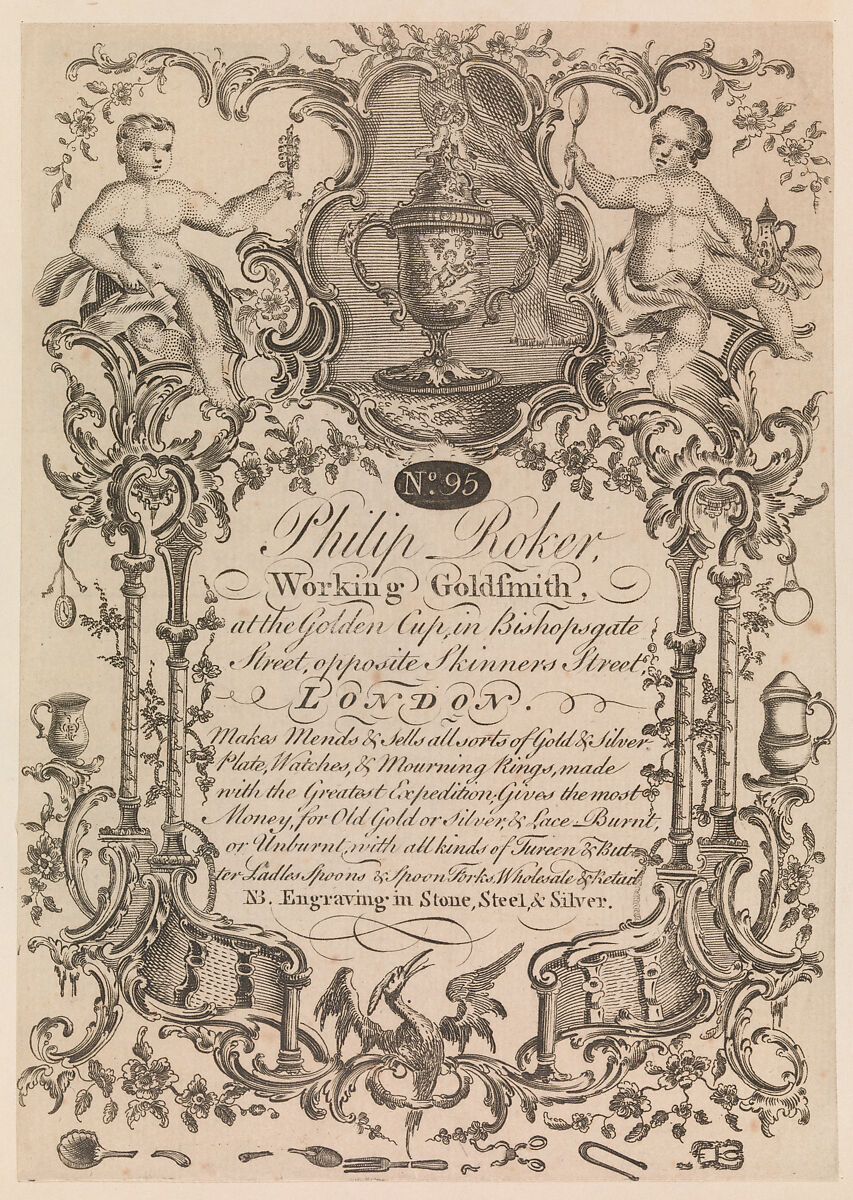 Nº. 95
Philip Roker,
Working Goldſmith,
at the Golden Cup, in Bishopsgate
Street, opposite Skinners Street,
LONDON.
Makes Mends & Sells all sorts of Gold & Silver-
Plate, Watches, & Mourning Rings, made
with the Greatest Expedition, Gives the most
Money, for Old Gold or Silver, & Lace-Burnt,
or Unburnt, with all kinds of Tureen & But-
ter Ladles Spoons & Spoon Forks, Wholesale & Retail
NB. Engraving in Stone, Steel, & Silver.